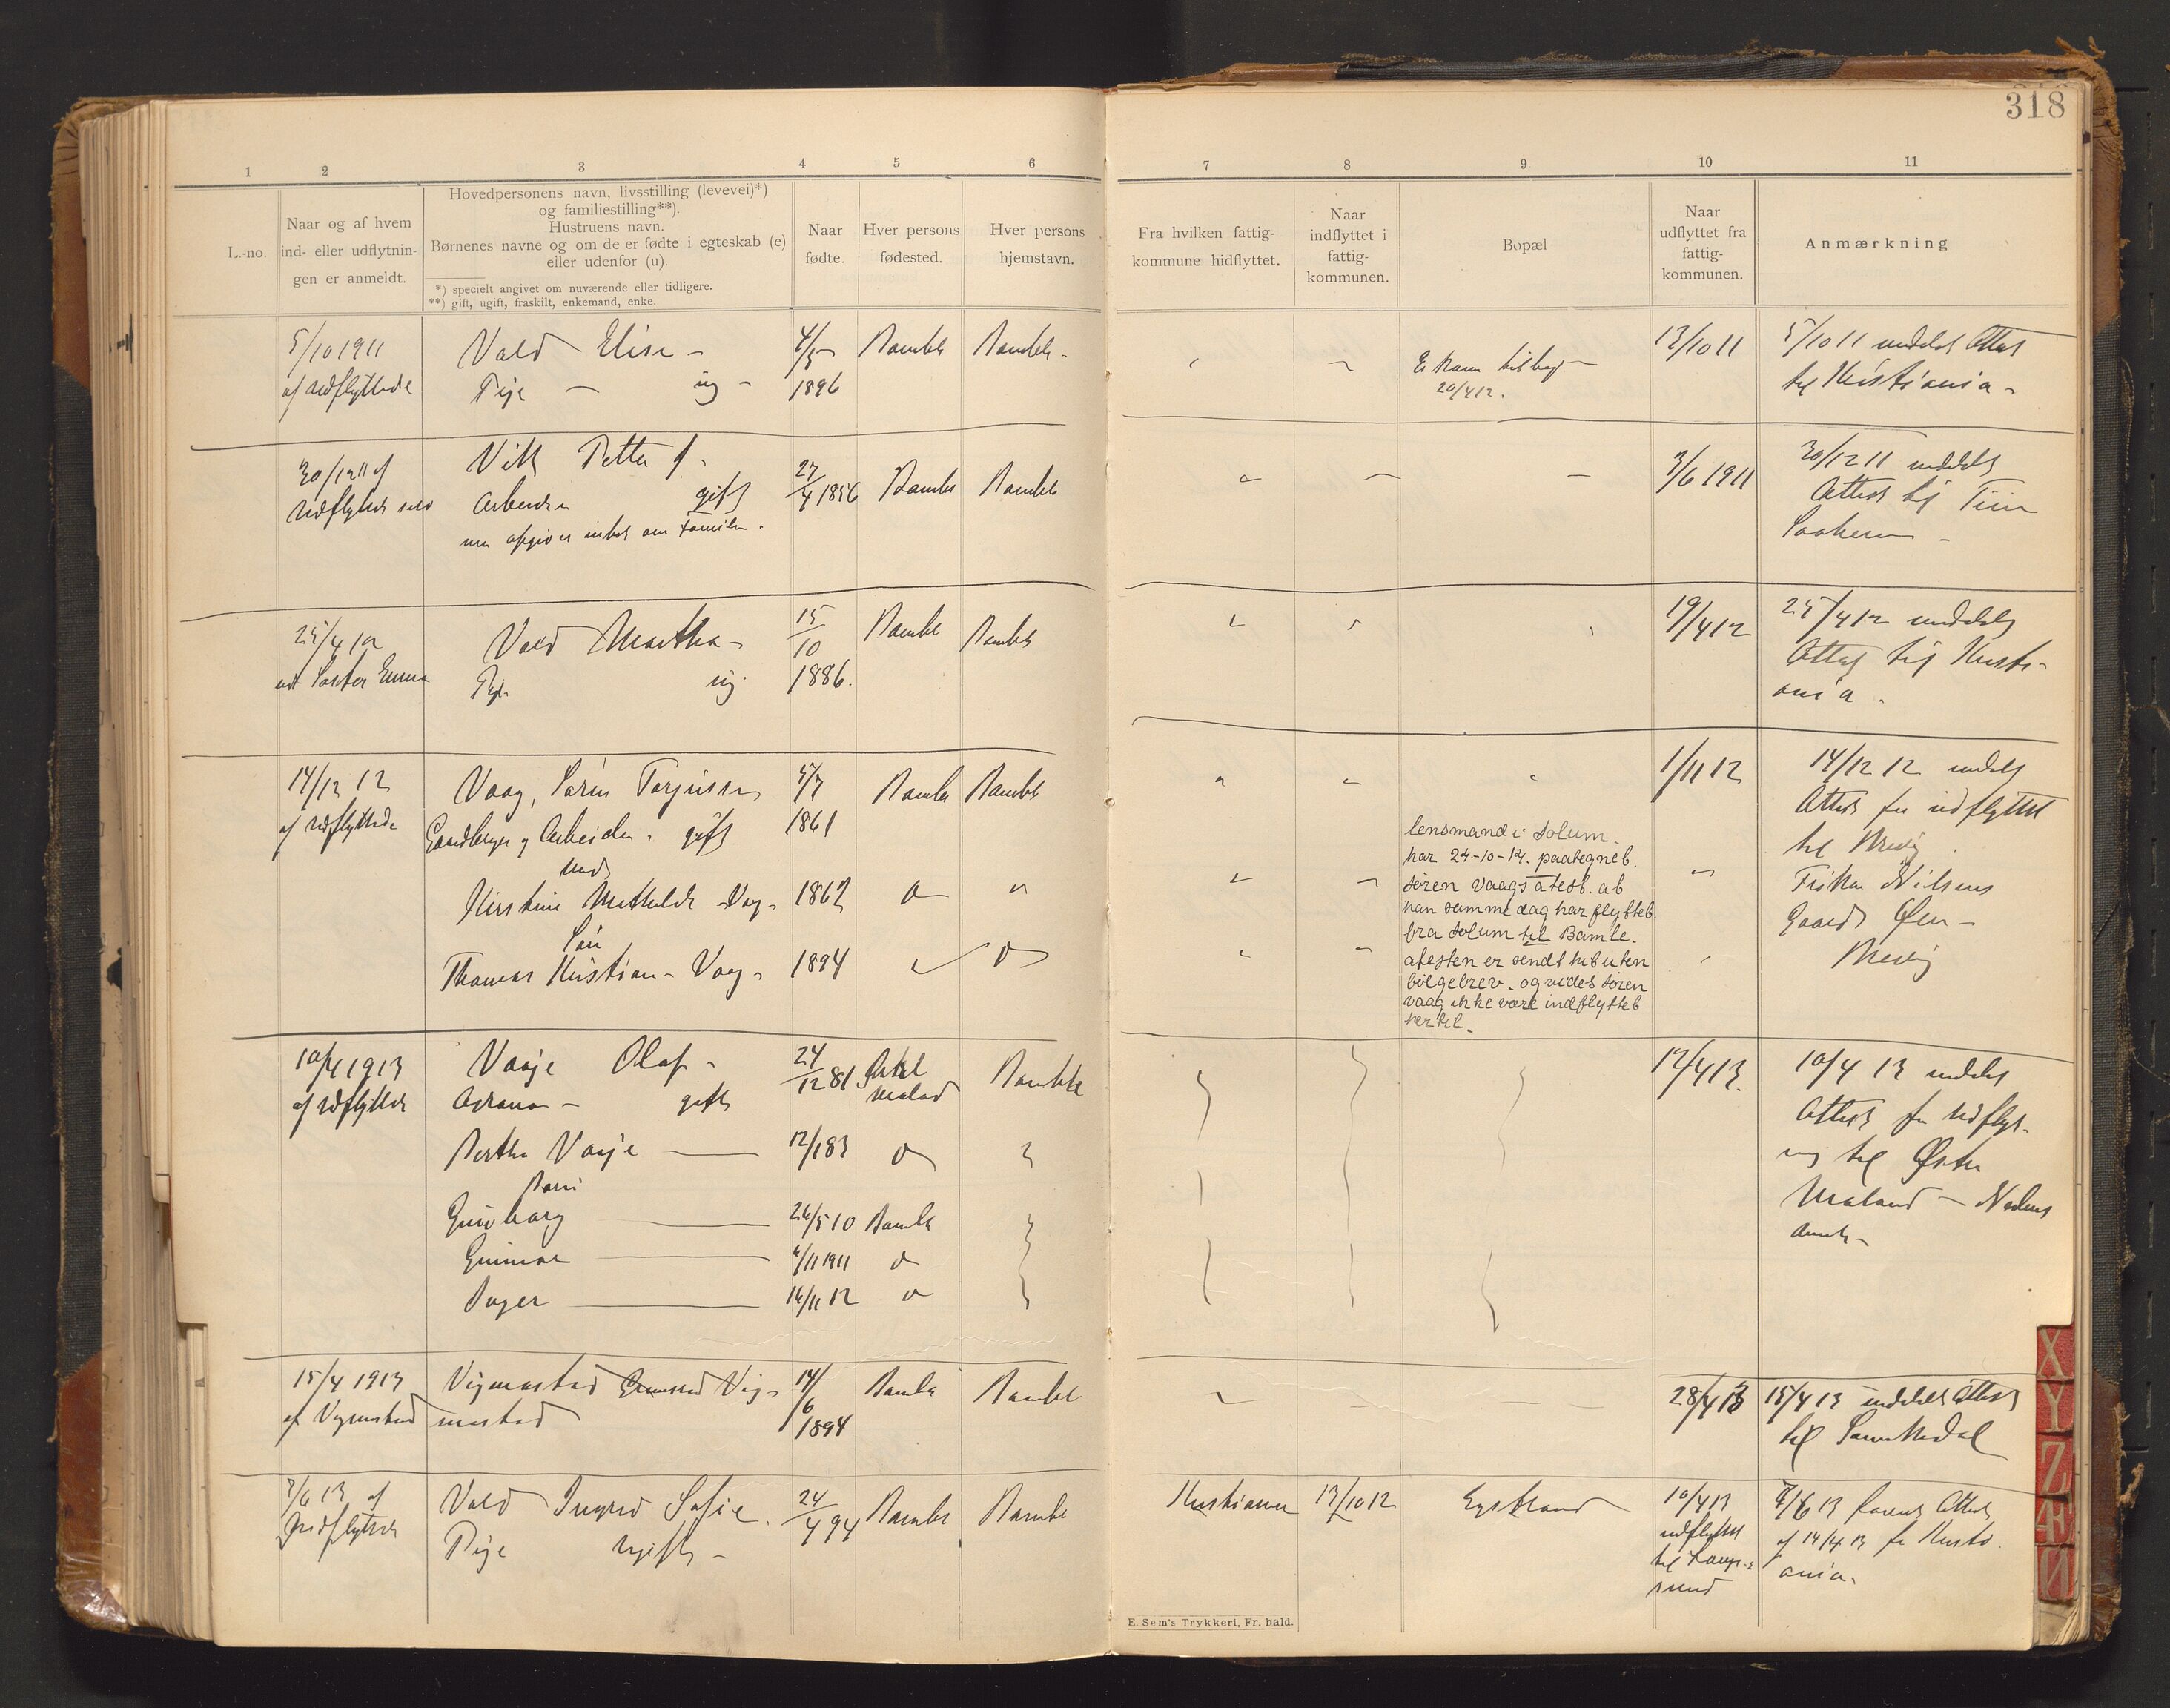 318
1 2 3 4 5 6 7 8 9 10 11
L.-no.
Naar og af hvem
ind- eller udflytnin-
gen er anmeldt.
Hovedpersonens navn, livsstilling (levevei)*)
og familiestilling**).
Hustruens navn.
Børnenes navne og om de er fødte i egteskab (e)
eller udenfor (u).
*) specielt angivet om nuværende eller tidligere.
**) gift, ugift, fraskilt, enkemand, enke.
Naar
fødte.
Hver persons
fødested.
Hver persons
hjemstavn.
Fra hvilken fattig-
kommune hidflyttet.
Naar
indflyttet i
fattig-
kommunen.
Bopæl
Naar
udflyttet fra
fattig-
kommunen.
Anmærkning
5/10 1911
af udflyttede
Vald Elise -
Pige - ug -
4/5
1896
Bamble
Bamble -
20/4 12.
13/10 11
5/10 11 meddelt Attest
til Kristiania -
30/12 11 af
udflyttede selv
Vik Petter J.
Arbeider gift
27/4 1856
Bamble
Bamble
3/6 1911
30/12 11 meddelt
Attest til Tinn
25/4 12
ved Søster Emma
Vald Martha -
Pige ug.
15/10
1886.
Bamble
Bamble
19/4 12
25/4 12 meddelt
Attest til Kristi-
ania.
14/12 12
af udflyttede
Vaag, Søren Torjusen
Gaardbruger og Arbeider. gift
med
Kirstine Mathilde Vaag -
Søn
Thomas Kristian - Vaag -
5/7
1861
1867
1894
Bamble
Bamble
lensmand i Solum.
har 24-10-14. paategnet.
Søren Vaags atest. at
han samme dag har flyttet.
fra Solum til Bamle.
atesten er sendt hit uten
følgebrev. og vides Søren
Vaag ikke være indflyttet
hertil.
1/11 12
14/12 12 meddelt
Attest for udflyttet
til Brevig.
Nilsens
Gaard Øen -
Brevig
10/4 1913
af udflyttede
Vaaje Olaf -
gift
Bertha Vaaje
Barn
Gunborg
Gunnar
Birger
24/12 81
12/1 83
26/5 10
6/11 1911
16/11 12
Bamble
Bamble
12/4 13.
10/4 13 meddelt
Attest for udflyt-
ning til Øster
Moland - Nedenes
Amt -
15/4 1913
af Vigmostad
Vigmostad Vig-
mostad
14/6
1894
Bamble
Bamble
28/4 13
15/4 13 meddelt Attest
til Sannikedal
7/6 13 af
Indflyttede
Vald Ingrid Sofie.
Pige ugift -
24/4 94
Bamble
Bamble
Kristiania
13/10 12
Eystrand
10/4 13
udflyttet
til Lange-
sund
7/6 13 forevist Attest
af 14/4 13 fra Kristi-
ania.
E. Sem's Trykkeri, Fr. hald.
X
Y
Z
Æ
Ø